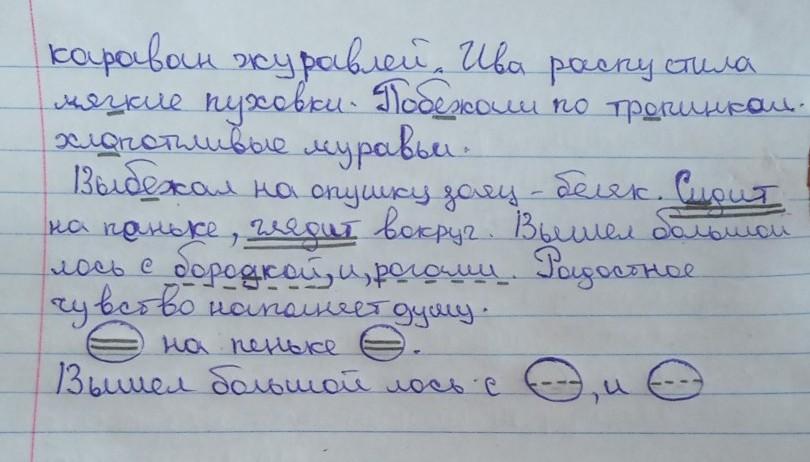 караван журавлей. Ива распустила
мягкие пуховки. Побежали по тропинкам
хлопотливые муравьи.
Выбежал на опушку заяц - беляк. Сидит
на паньке, глядит вокруг. Вышел большой
лось с бородкой, и, рогами. Радостное
чувство наполняет душу.
на пеньке .
Вышел большой лось с , и